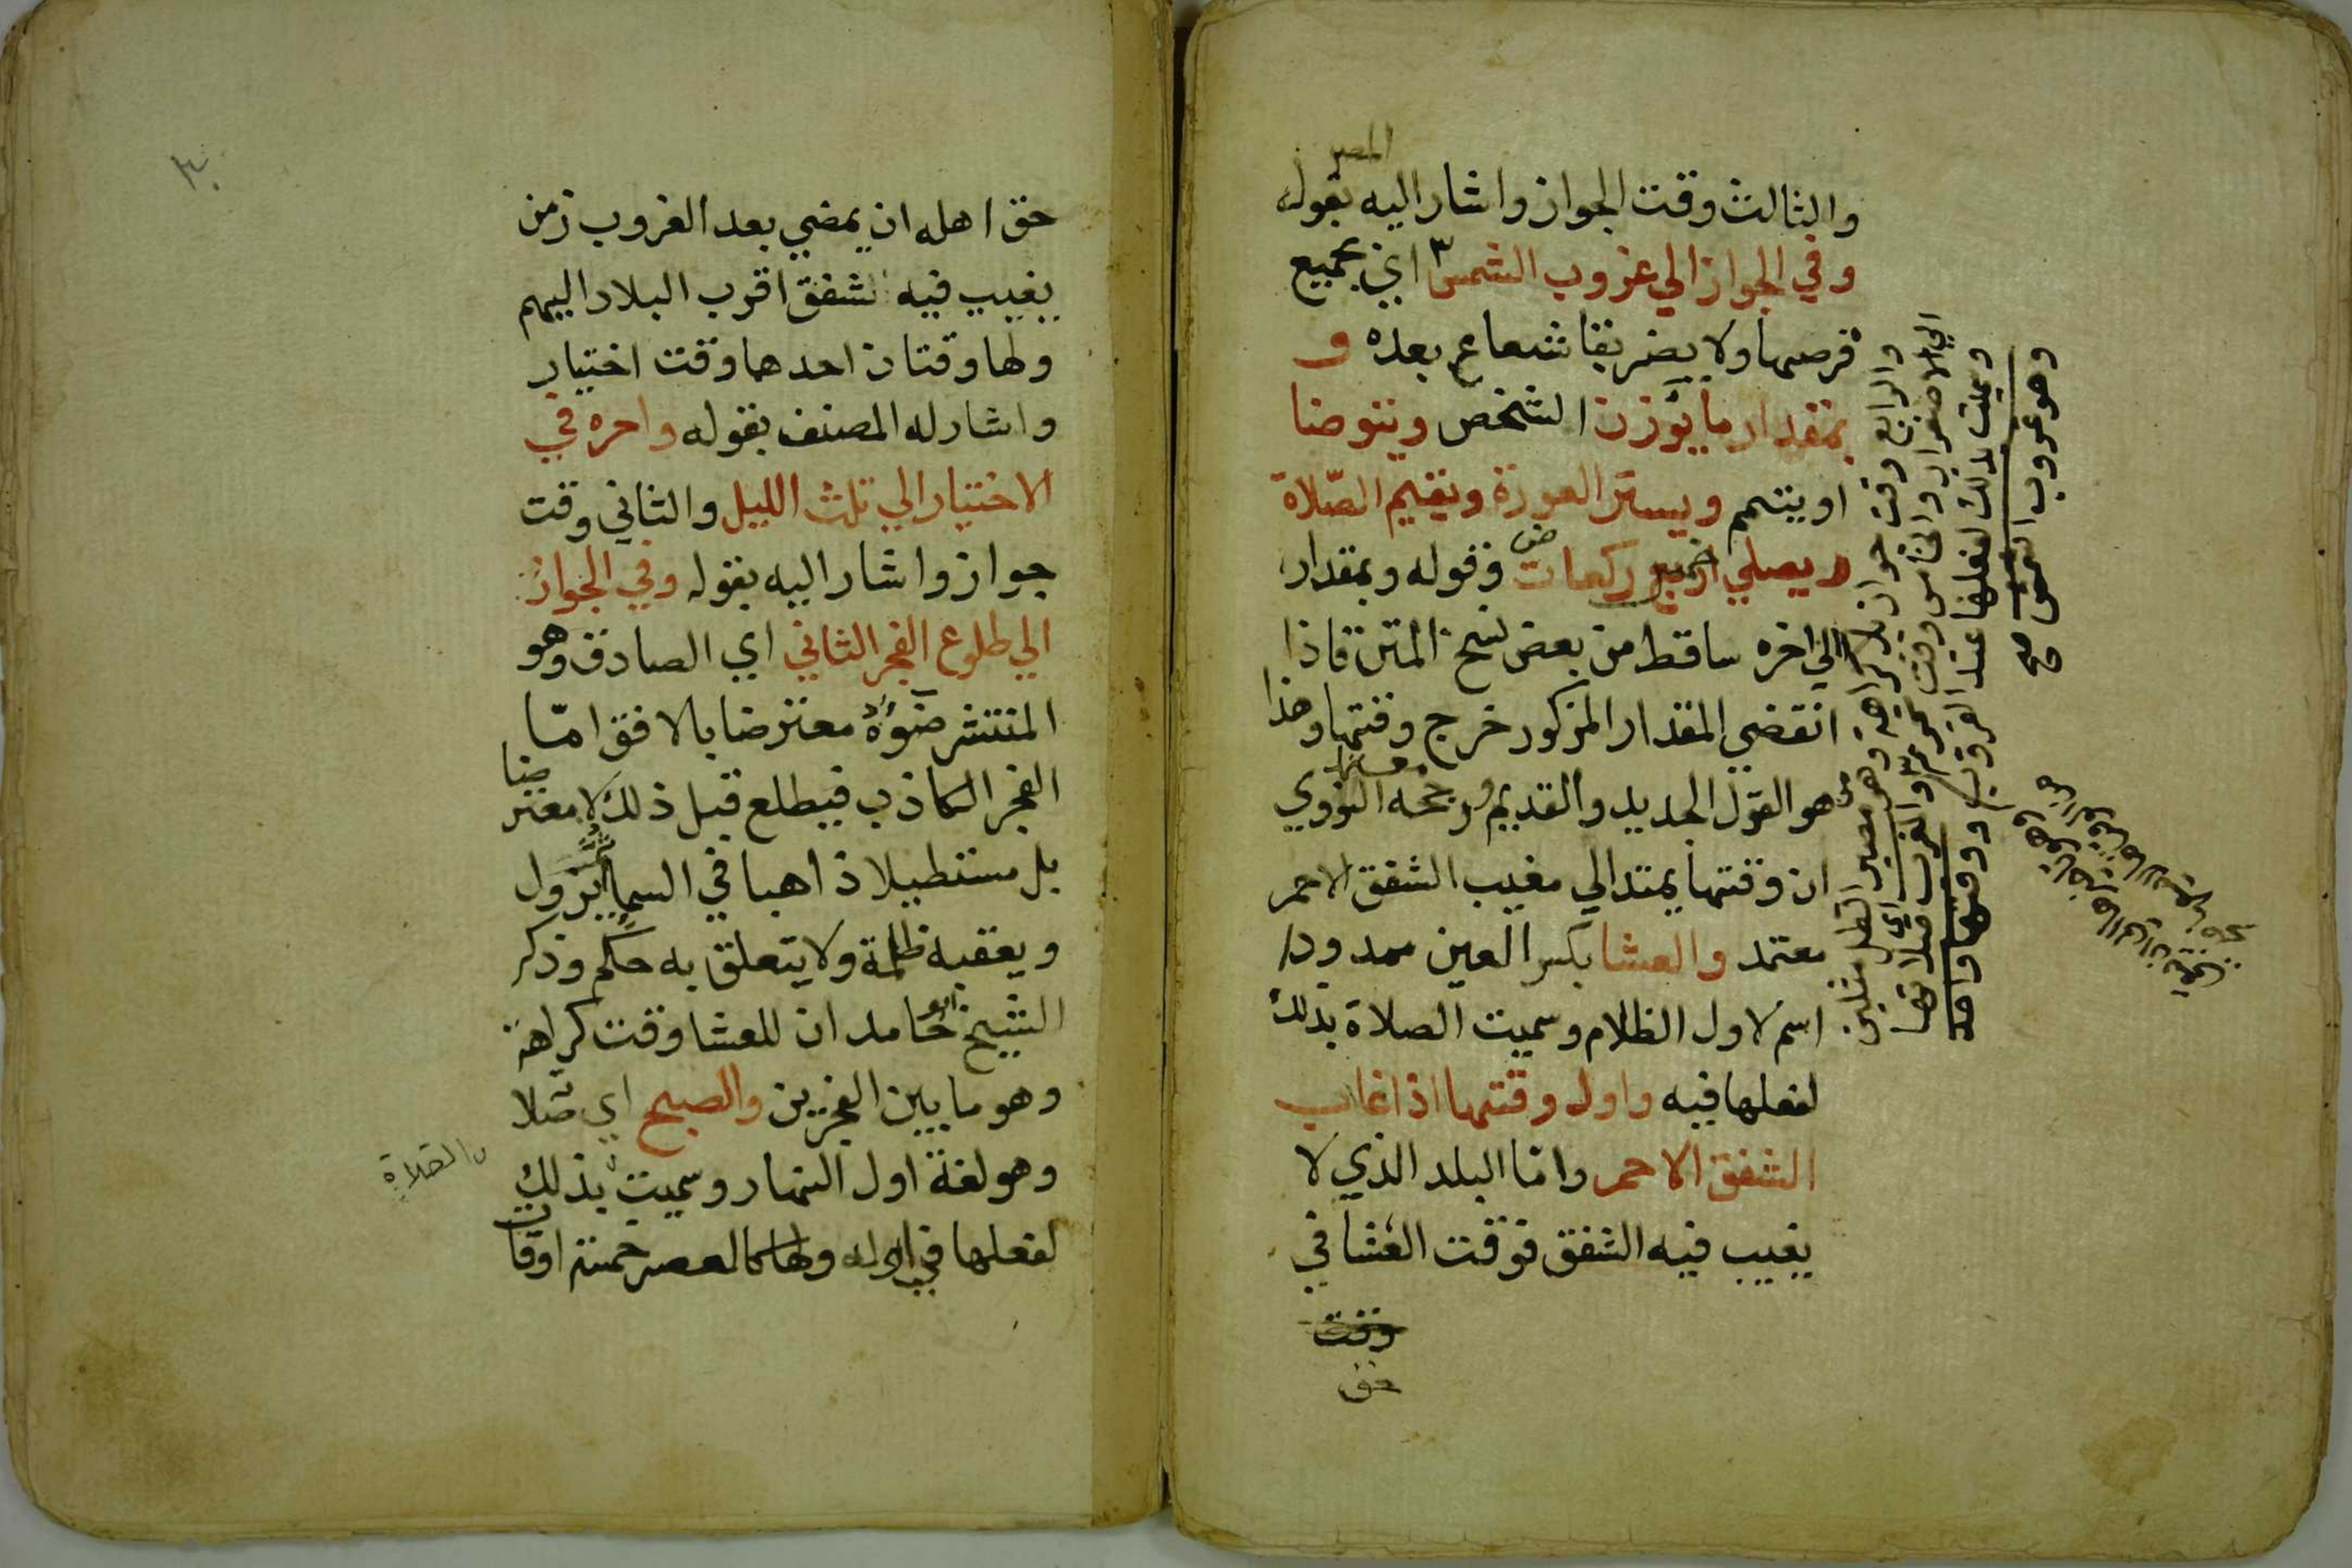 المصر
والثالث وقت الجواز واشار اليه بقوله
وفي الجواز الي غروب الشمس اي بجميع
قرصها ولا يضر بقا شعاع بعده و
بمقدار ما يؤذن الشخص ويتوضا
او يتيمم ويستر العورة ويقيم الصلاة
ويصلي خمس ركعات وقوله وبمقدار
الي اخره ساقط من بعض نسخ المتن فاذا
انقضي المقدار المذكور خرج وقتها وهذا
هو القول الجديد والقديم ورجحه النووي
ان وقتها يمتد الي مغيب الشفق الاحمر
معتمد والعشا بكسر العين ممدودا
اسم لاول الظلام وسميت الصلاة بذلك
لفعلها فيه واول وقتها اذا غاب
الشفق الاحمر واما البلد الذي لا
يغيب فيه الشفق فوقت العشا في
وقت
حق
والرابع وقت جواز بلا كراهة وهو من مصير الظل مثلين
الي الاصفرار والخامس وقت تحريم والمغرب اي صلاتها
وسميت بذلك لفعلها عند الغروب ووقتها واحد
وهو غروب الشمس صح
٣٠
حق اهله ان يمضي بعد الغروب زمن
يغيب فيه شفق اقرب البلاد اليهم
ولها وقتان احدهما وقت اختيار
واشار له المصنف بقوله واخره في
الاختيار الي ثلث الليل والثاني وقت
جواز واشار اليه بقوله وفي الجواز
الي طلوع الفجر الثاني اي الصادق وهو
المنتشر ضوؤه معترضا بالافق امّا
الفجر الكاذب فيطلع قبل ذلك لا معترضا
بل مستطيلا ذاهبا في السما ثم يزول
ويعقبه ظلمة ولا يتعلق به حكم وذكر
الشيخ ابو حامد ان للعشا وقت كراهة
وهو ما بين الفجرين والصبح اي صلاته
وهو لغة اول النهار وسميت بذلك
الصلاة
لفعلها في اوله ولها كالعصر خمسة اوقات